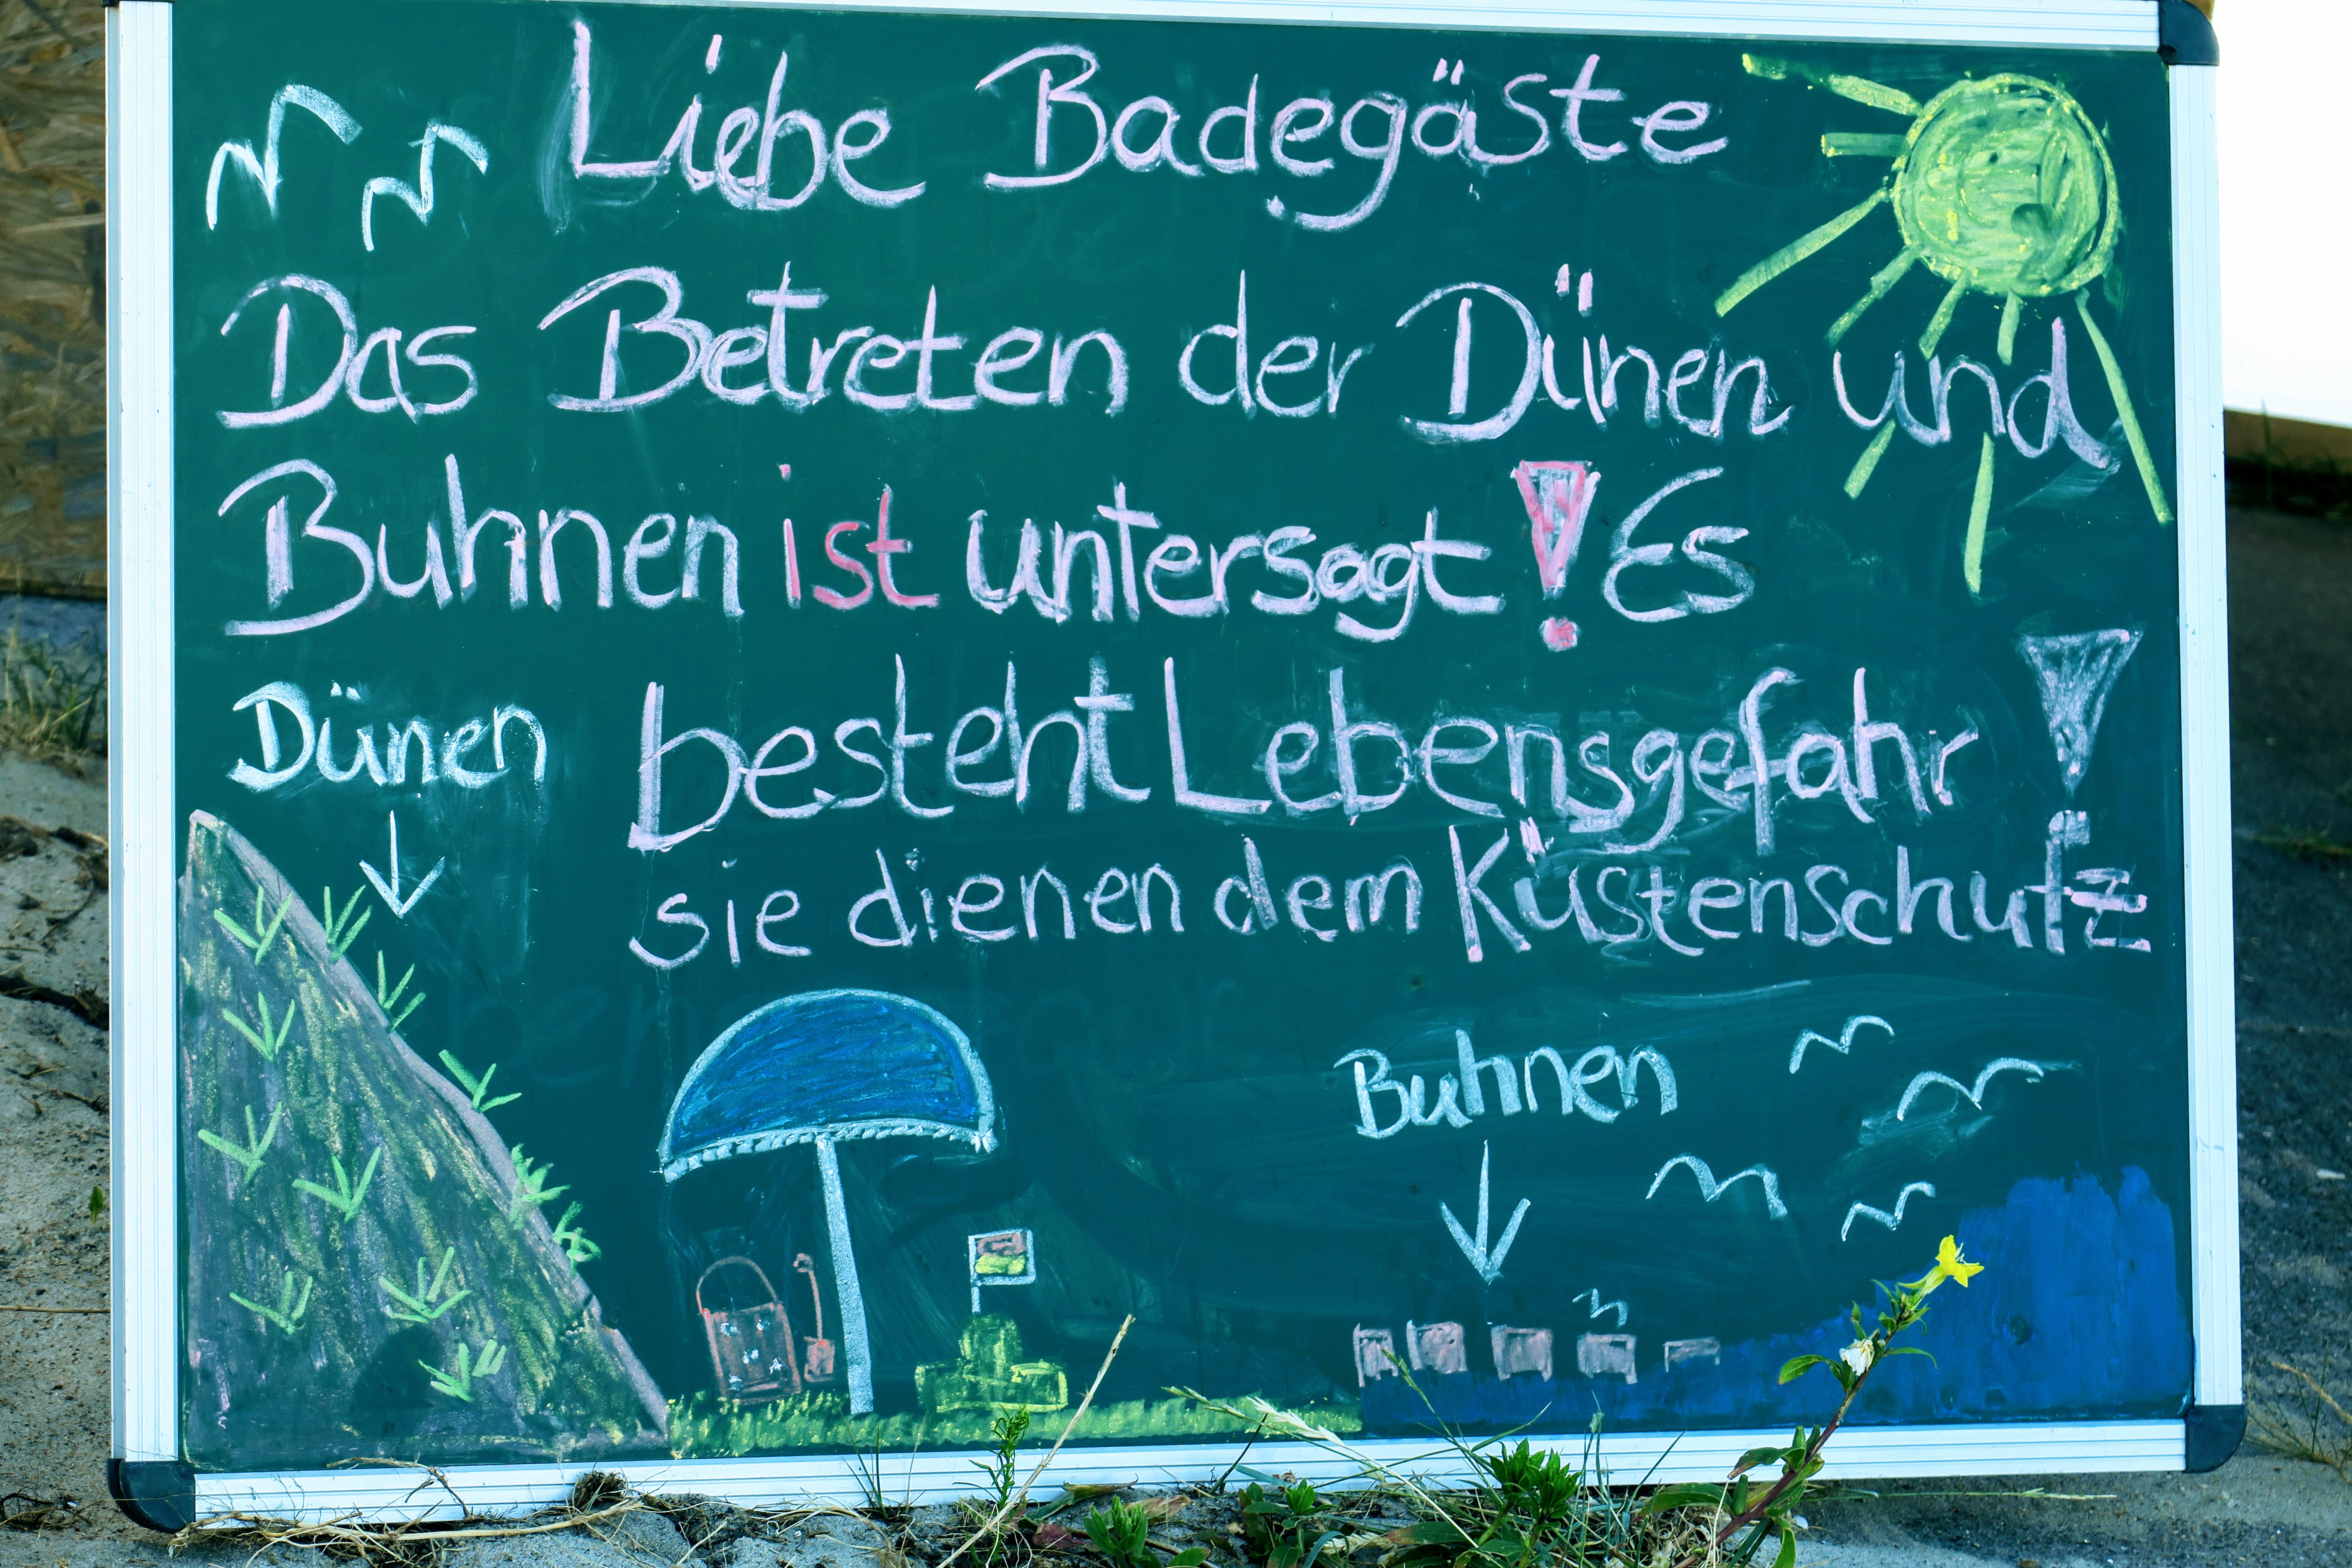 Liebe Badegäste
Das Betreten der Dünen und
Buhnen ist untersagt! Es
besteht Lebensgefahr!
sie dienen dem Küstenschutz
Dünen
Buhnen